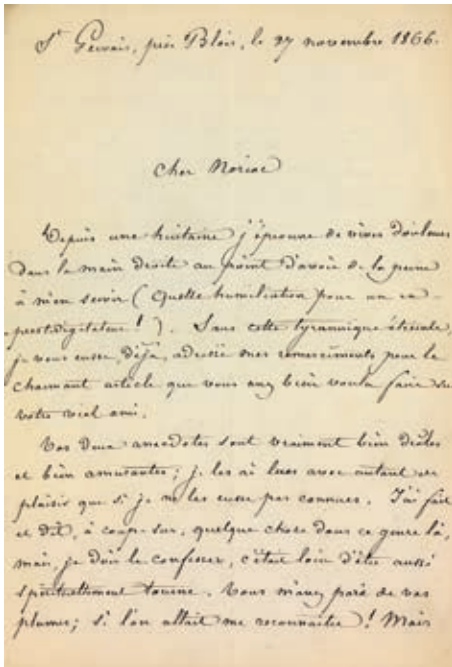 St Gervais, près Blois, le 27 novembre 1866.
Cher Noriac
Depuis une huitaine j'éprouve de vives douleurs
dans la main droite au point d'avoir de la peine
à m'en servir (Quelle humiliation pour un ex-
prestidigitateur !). Sans cette tyrannique
je vous eusse, déjà, adressé mes remerciments pour le
charmant article que vous avez bien voulu faire sur
votre vieil ami.
Vos deux anecdotes sont vraiment bien drôles
et bien amusantes; je les ai lues avec autant de
plaisir que si je ne les eusse pas connues. J'ai fait
et dit, à coup-sur, quelque chose dans ce genre là,
mais, je dois le confesser, c'était loin d'être aussi
spirituellement tourné. Vous m'avez paré de vos
plumes; si l'on allait me reconnaître ! Mais